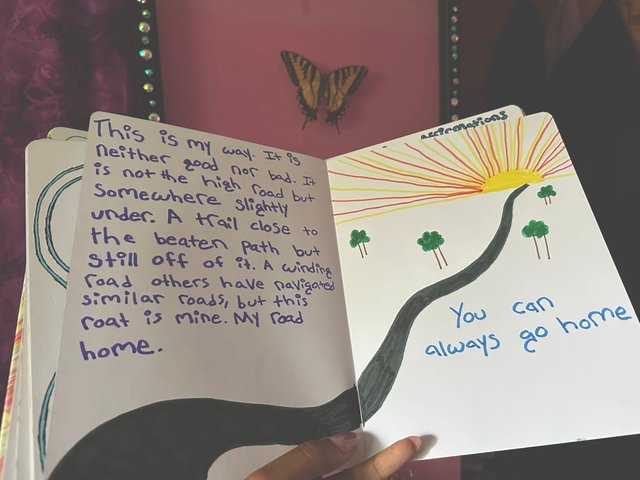 This is my way. It is
neither good nor bad. It
is not the high road but
somewhere slightly
under. A trail close to
the beaten path but
still off of it. A winding
road others have navigated
similar roads, but this
roat is mine. My road
home.
affirmations
You can
always go home